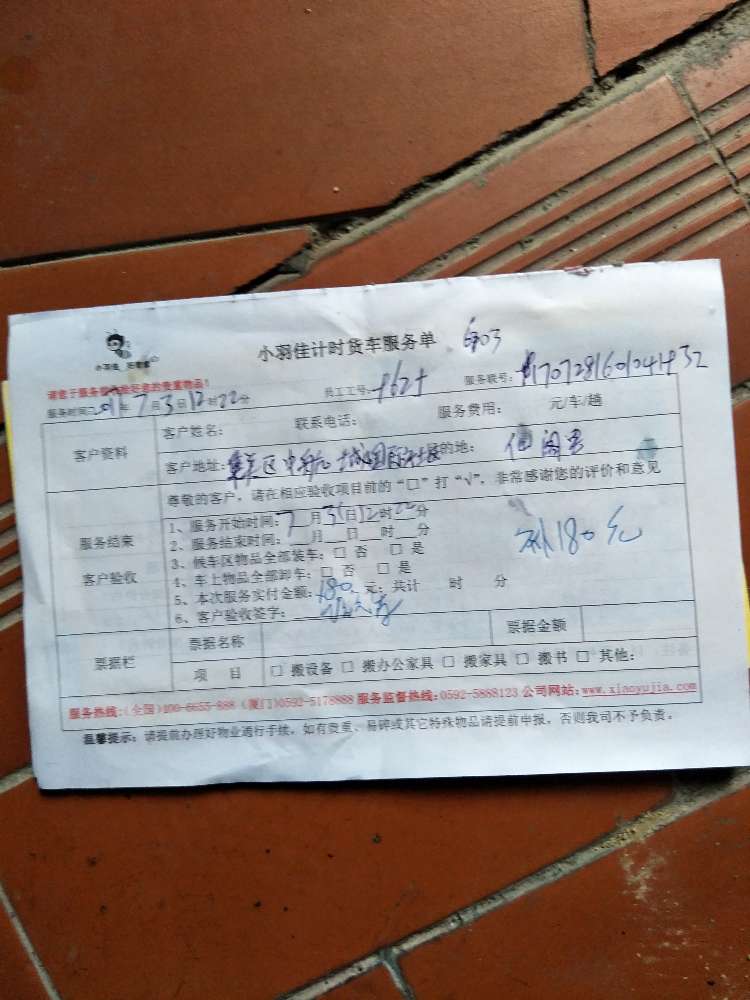 小羽佳计时货车服务单 603
小羽佳 好管家
请您于服务前
您的贵重物品！
服务时间 年7月3 日12时22分 员工工号: 服务联号: 170728160104432
客户资料 客户姓名: 联系电话: 服务费用: 元/车/趟
客户地址: 集美区中航城 目的地:
尊敬的客户，请在相应验收项目前的“□”打“√”，非常感谢您的评价和意见
服务结束
客户验收
1、服务开始时间: 7月31日12时22分
2、服务结束时间: 月 日 时 分
3、候车区物品全部装车: □ 否 □ 是
4、车上物品全部卸车: □ 否 □ 是
5、本次服务实付金额: 180 元; 共计 时 分
6、客户验收签字:
补180元
票据栏 票据名称 票据金额
项 目 □ 搬设备 □ 搬办公家具 □ 搬家具 □ 搬书 □ 其他:
服务热线:(全国)400-6655-888 (厦门)0592-5178888 服务监督热线:0592-5888123 公司网站:www.xiaoyujia.com
温馨提示: 请提前办理好物业通行手续，如有贵重、易碎或其它特殊物品请提前申报，否则我司不予负责。